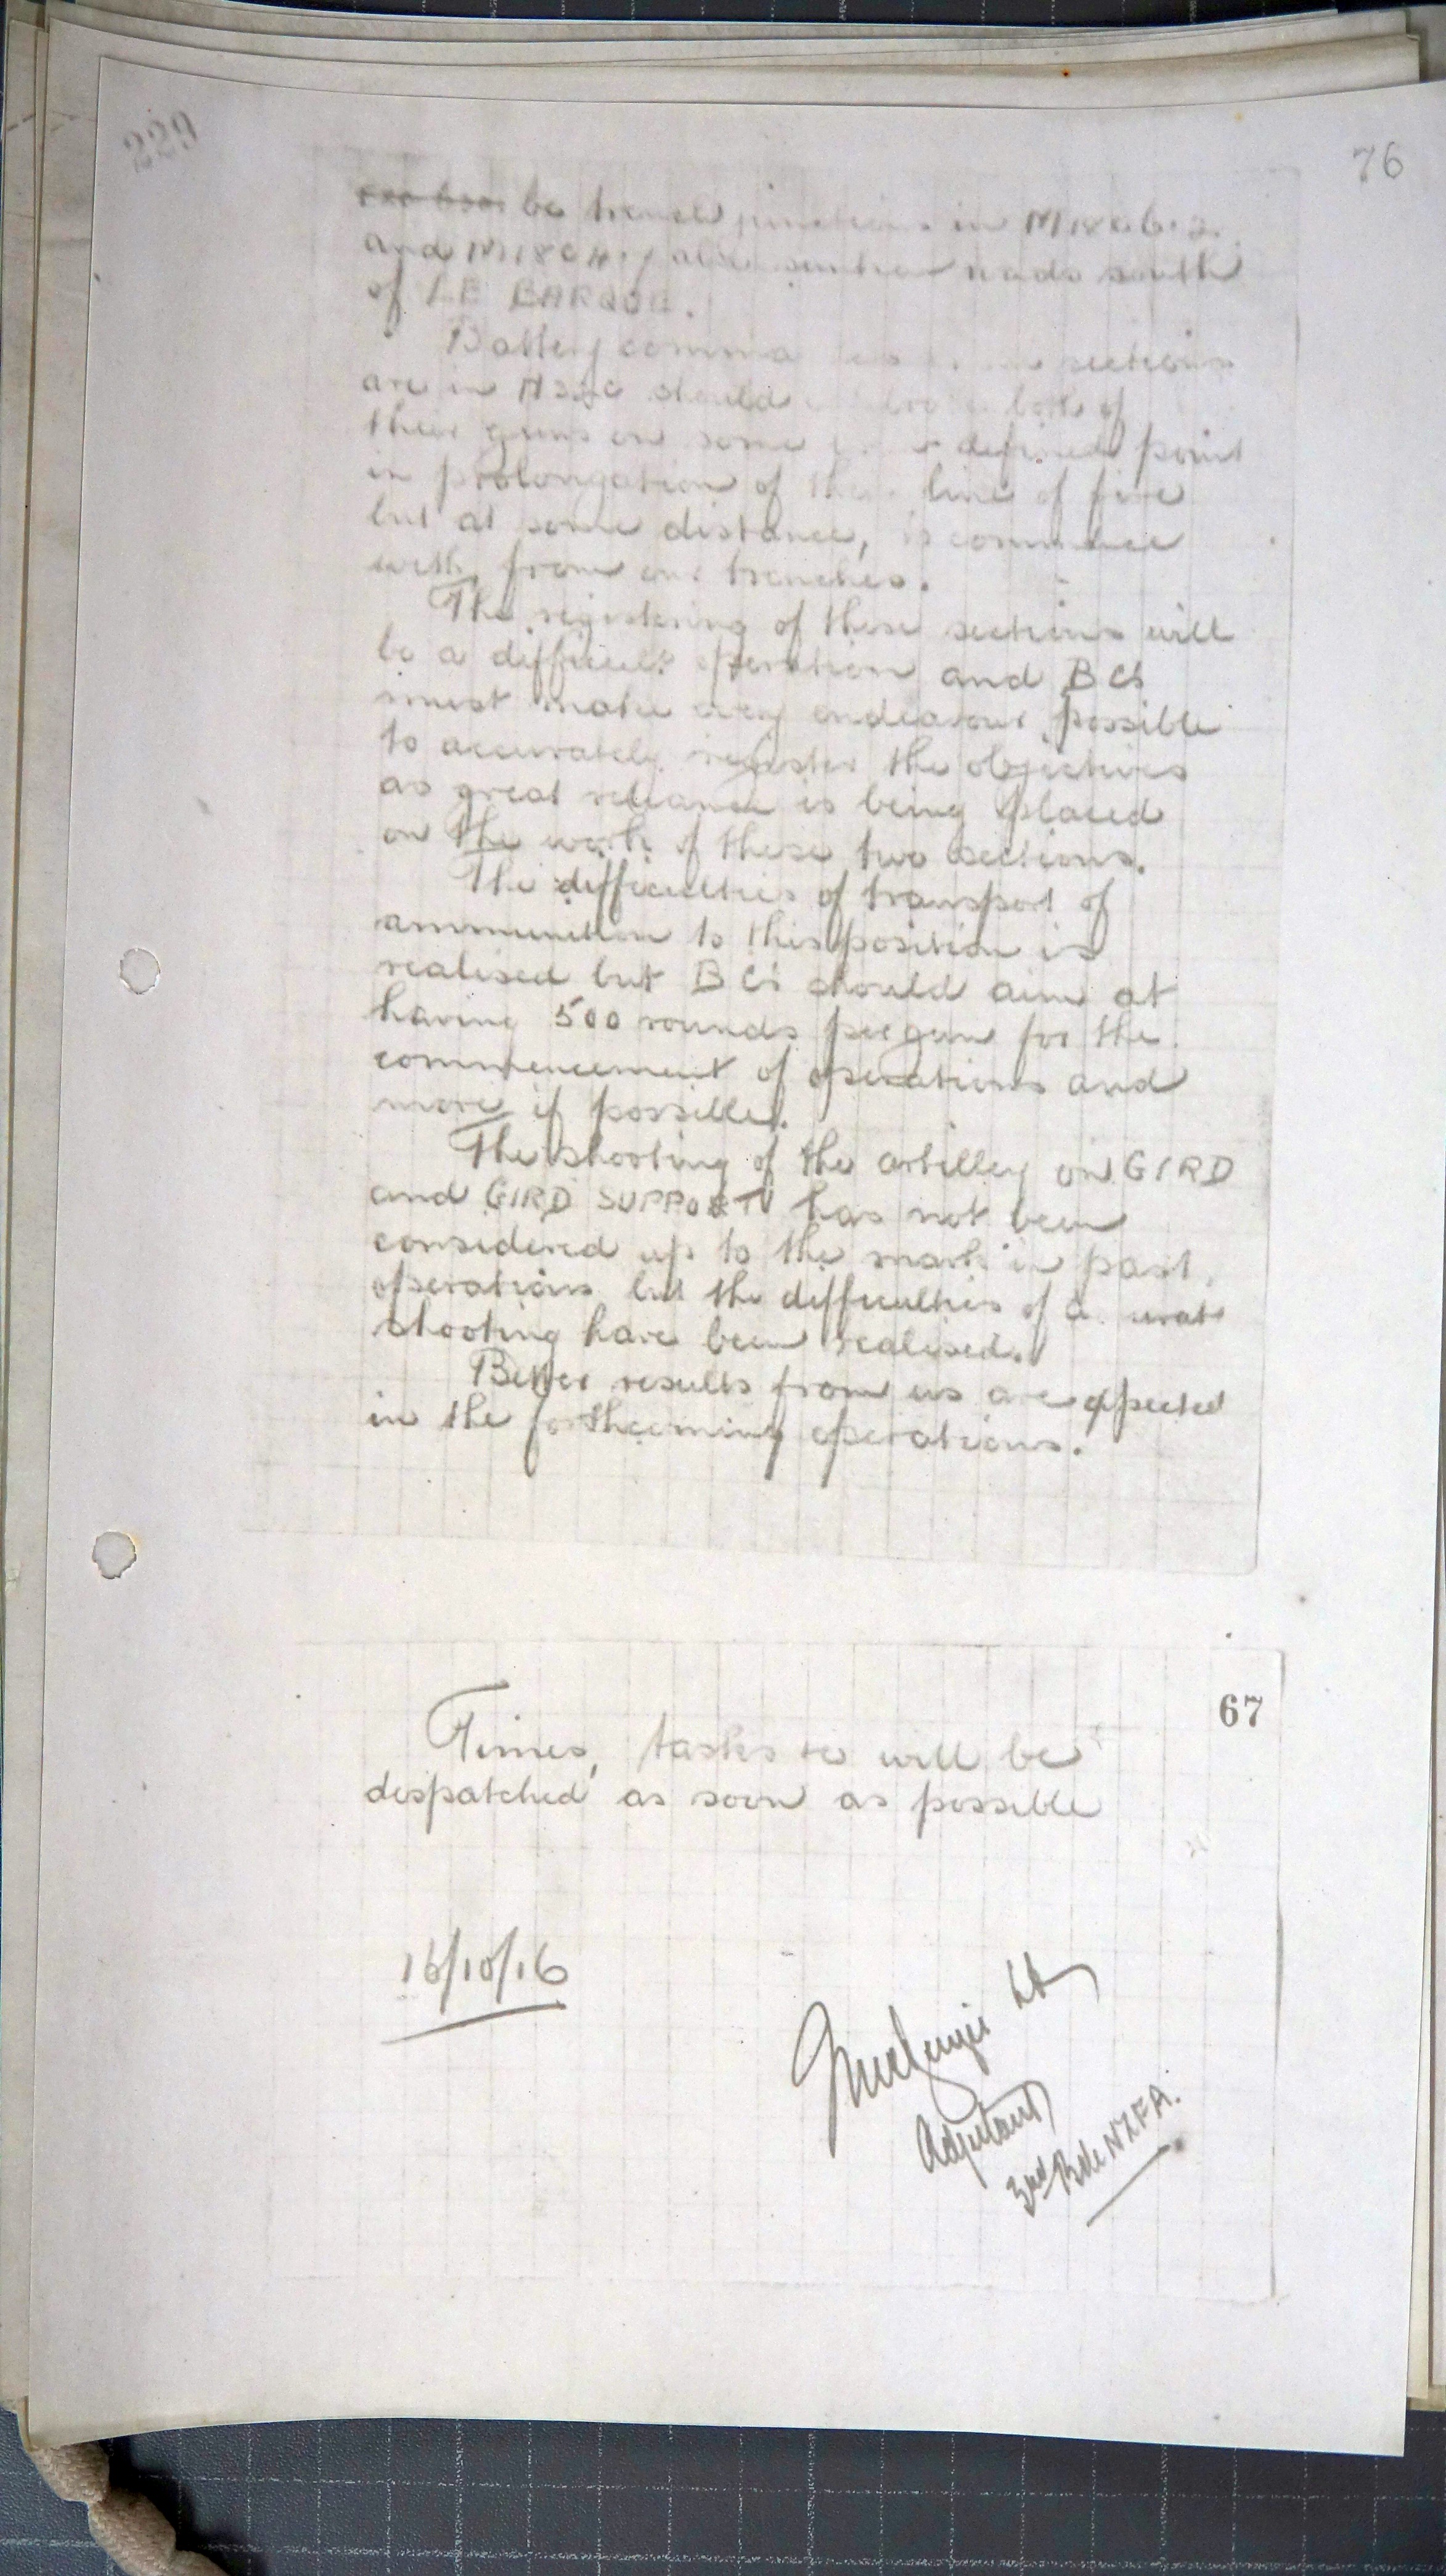 229
76
be trench junctions in M18
and M18 roads south
of LE BARQUE.
Battery sections
are in should both of
their guns on some defined point
in prolongation of their line of fire
but at some distance,
with, from our trenches.
The registering of these sections will
be a difficult operation and BCs
must make every endeavour possible
to accurately register the objectives
as great reliance is being placed
on the work of these two sections.
The difficulties of transport of
ammunition to this position is
realised but BCs should aim at
having 500 rounds per gun for the
commencement of operations and
more if possible.
The shooting of the artillery on GIRD
and GIRD SUPPORT has not been
considered up to the mark in past
operations but the difficulties of
shooting have been realised.
Better results from us are expected
in the forthcoming operations.
67
Times, tasks will be
despatched as soon as possible
16/10/16
Lt
Adjutant
3rd Bde NZFA.